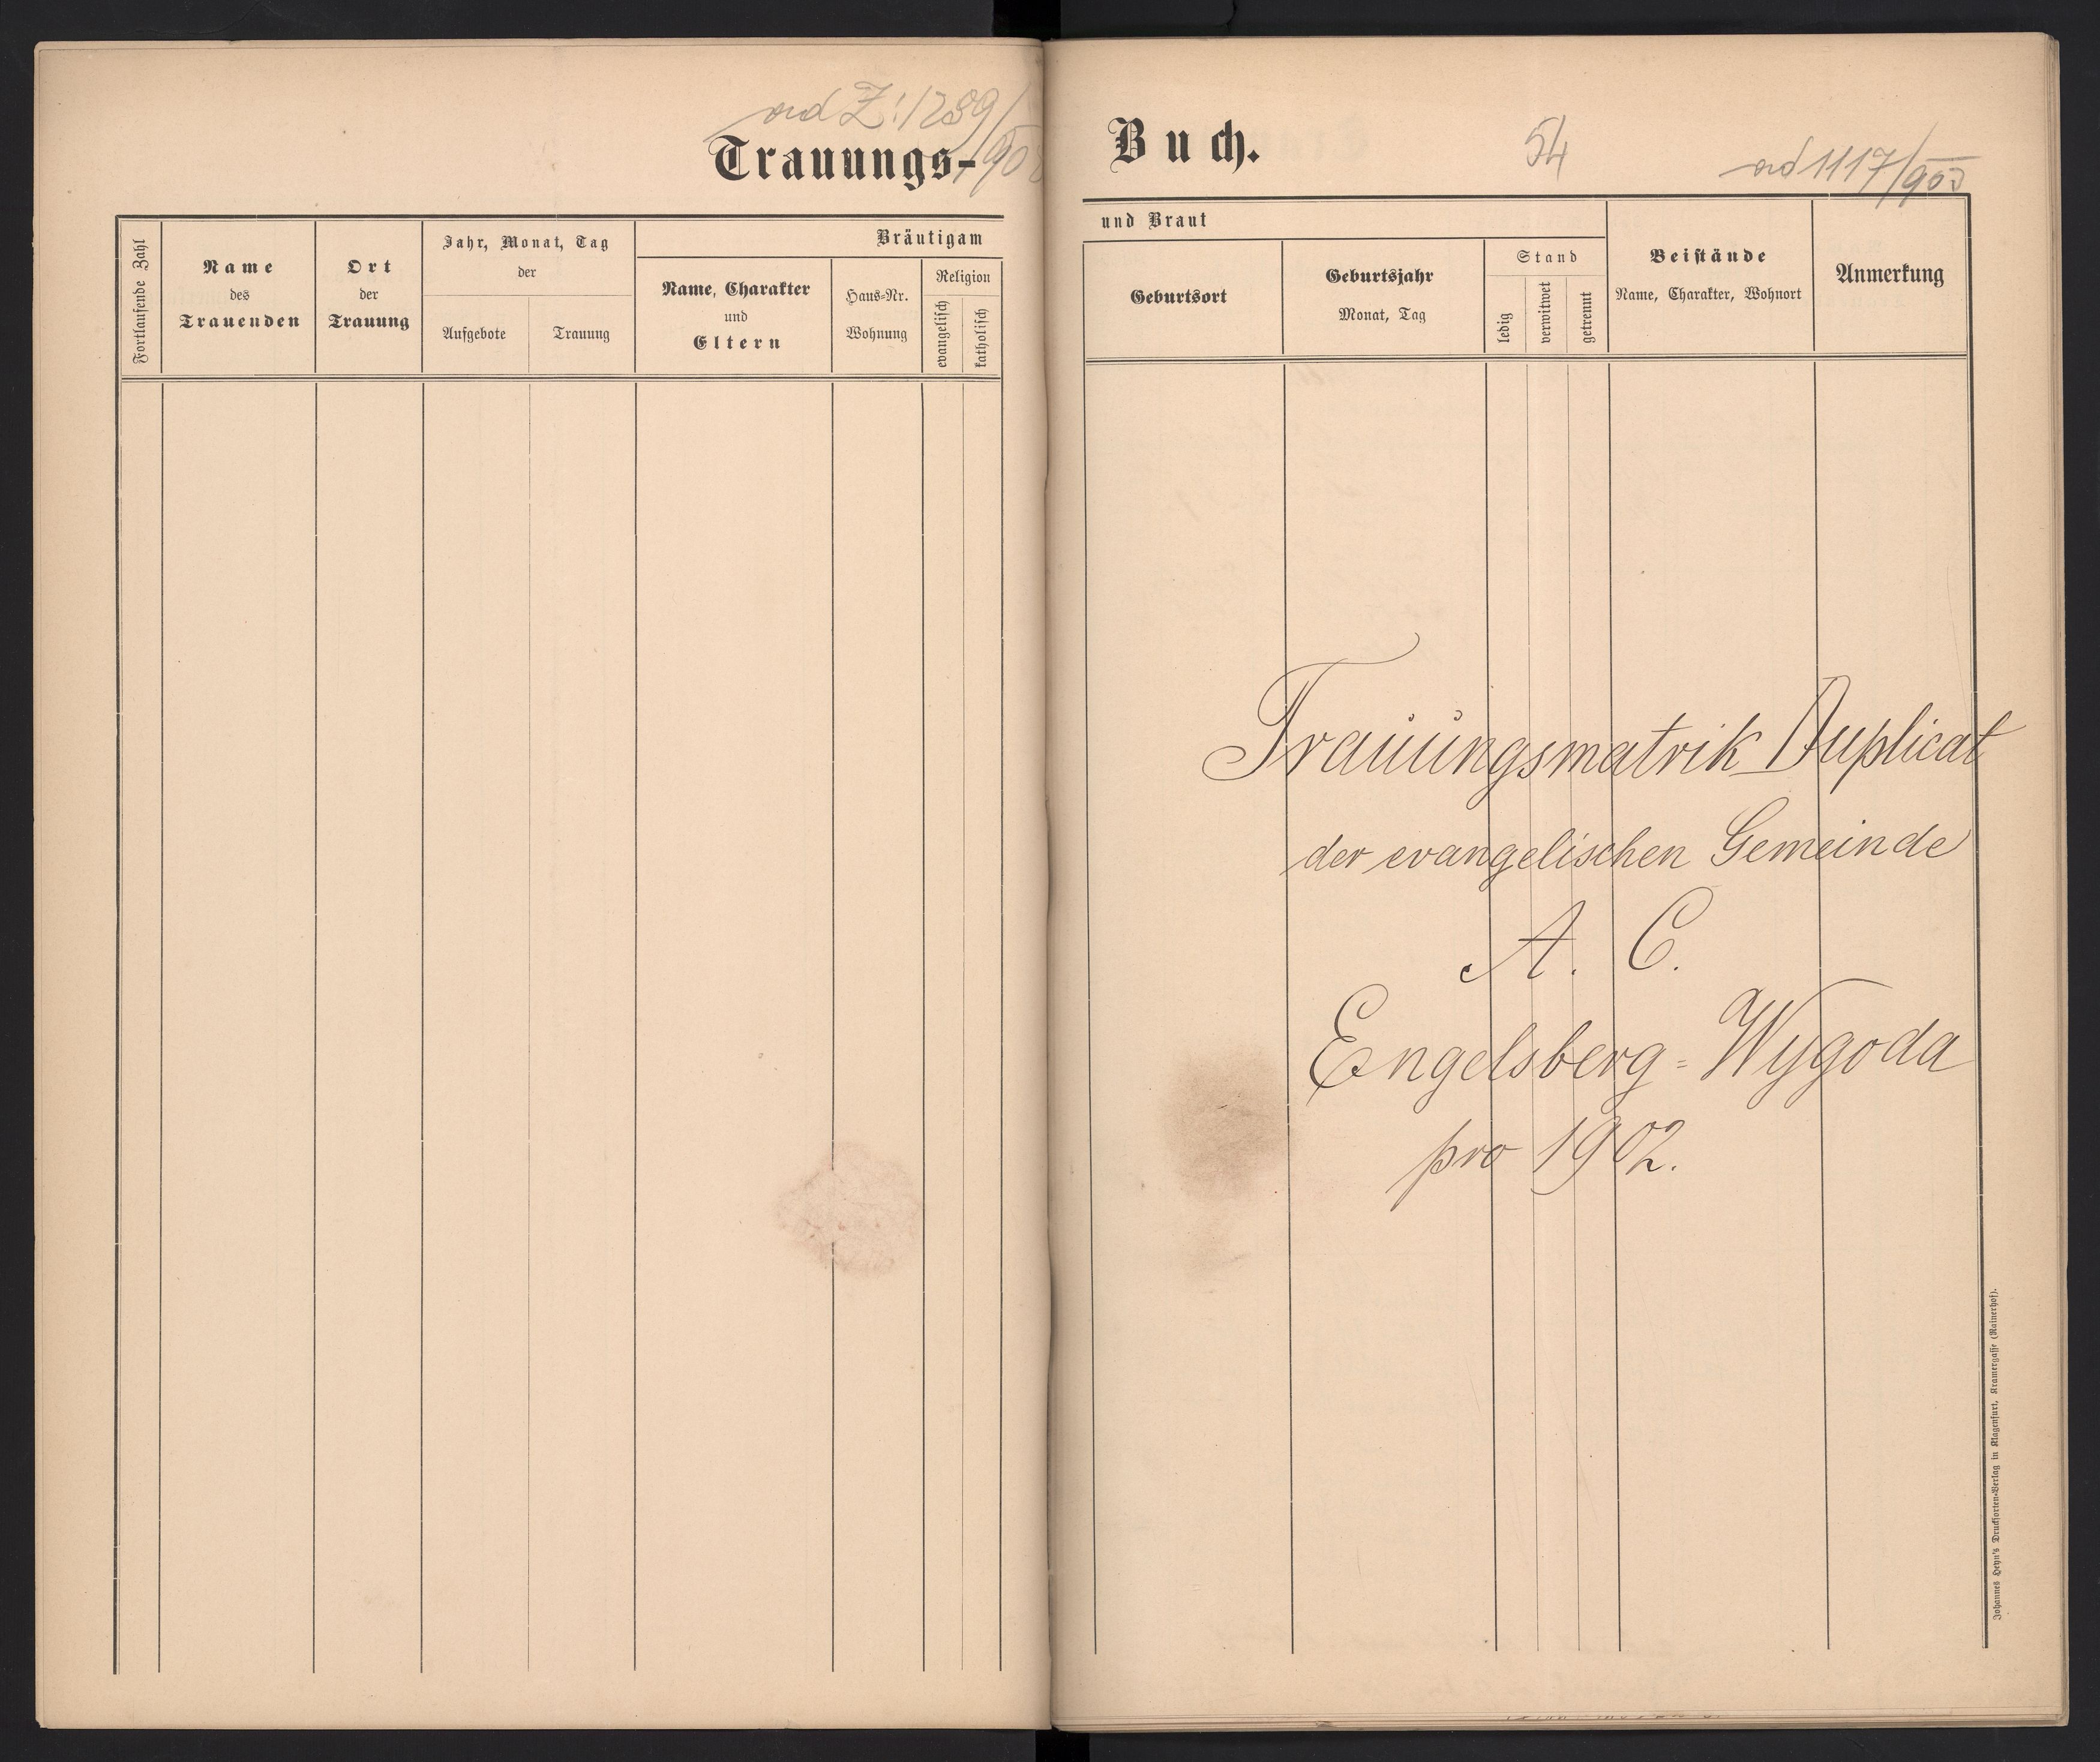 ad Z: 1289/
Trauungs-
Fortlaufende Zahl
Name
des
Trauenden
Ort
der
Trauung
Jahr, Monat, Tag
der
Aufgebote
Trauung
Bräutigam
Name, Charakter
und
Eltern
Haus-Nr.
Wohnung
Religion
evangelisch
katholisch
Buch.
54
ad 1117/903
und Braut
Geburtsort
Geburtsjahr
Monat, Tag
Stand
ledig
verwitwet
getrennt
Beistände
Name, Charakter, Wohnort
Anmerkung
Trauungsmatrik-Duplicat
der evangelischen Gemeinde
A. C.
Engelsberg=Wygoda
pro 1902.
Johannes Heyn's Drucksorten-Verlag in Klagenfurt, Kramergasse (Rainerhof).